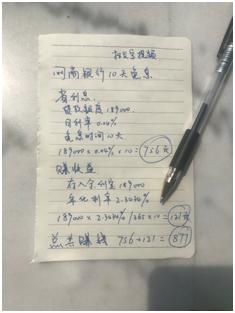 网商银行10天免息
省利息
贷款额度189000
日利率0.04%
免息时间10天
189000×0.04%×10=756元
赚收益
存入余利宝189000
年化利率2.3430%
189000×2.3430%/365×10=121元
总共赚钱 756+121=877